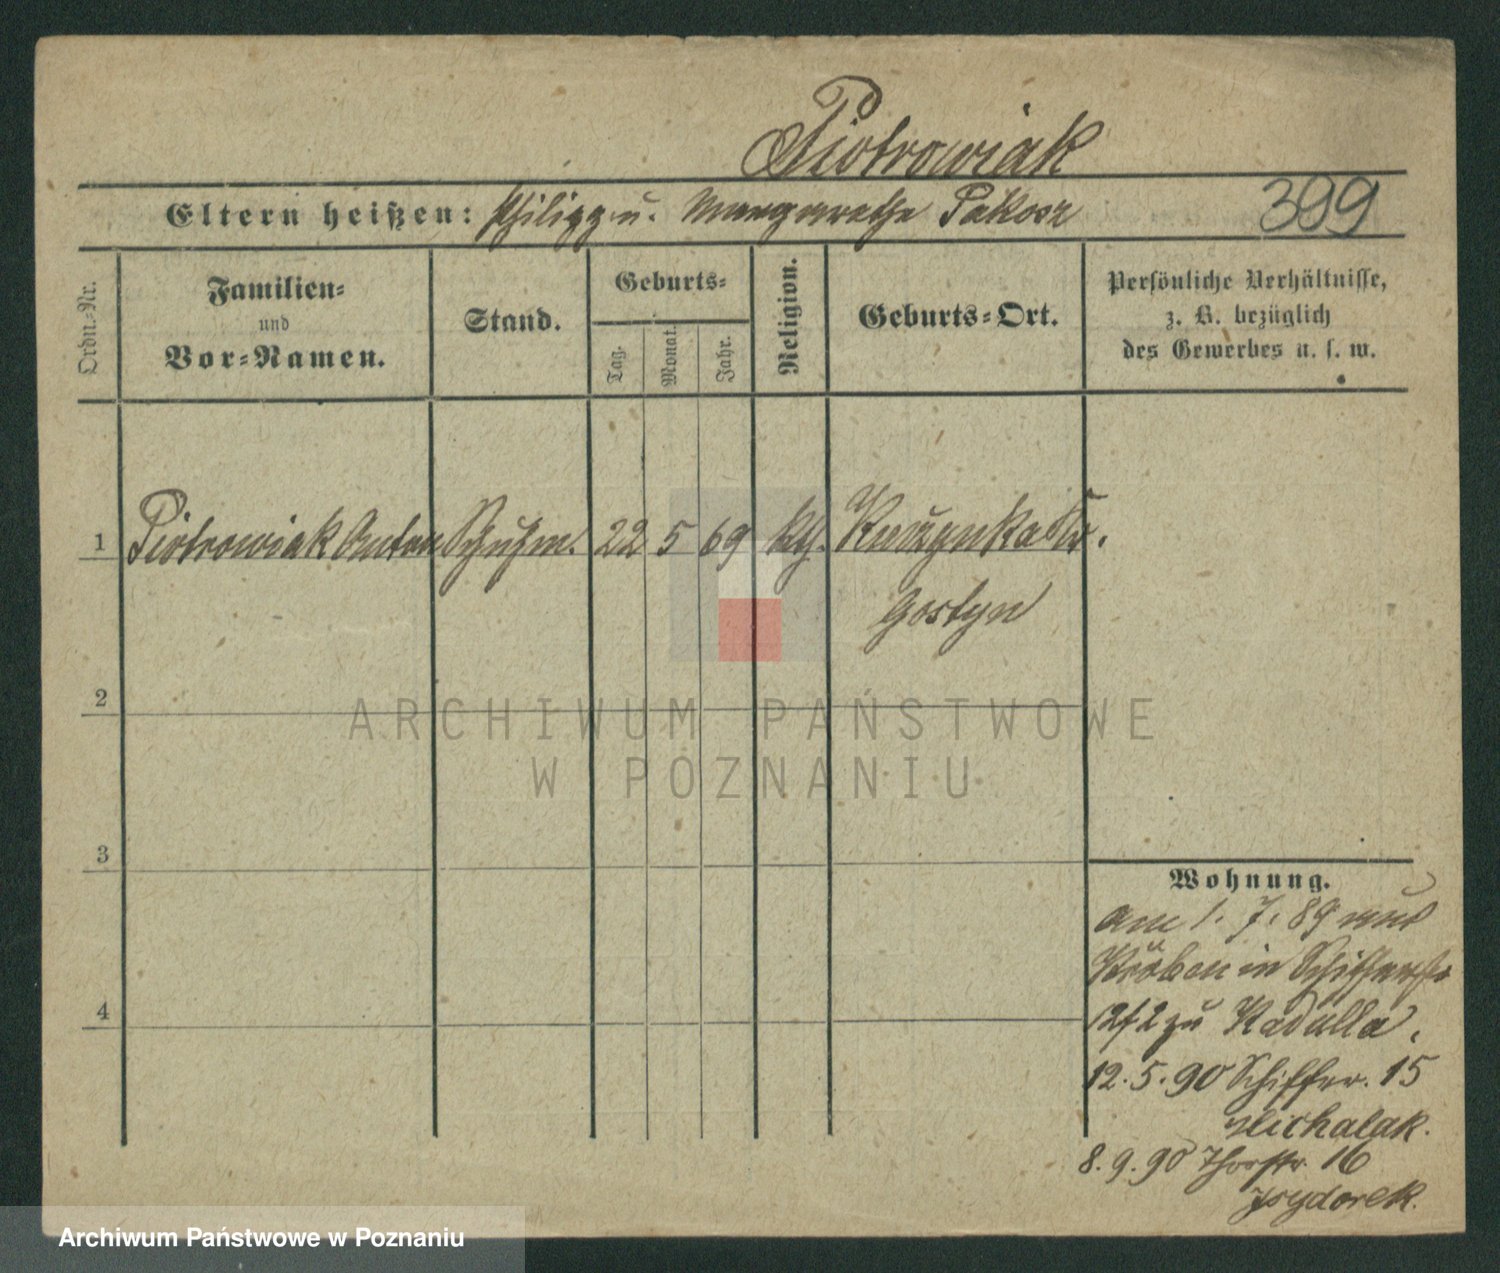 Piotrowiak
Eltern heißen: Philipp u. Margarethe Pakosz
399
Ordn.-Nr.
Familien-
und
Vor-Namen.
Stand.
Geburts-
Tag.
Monat.
Jahr.
Religion.
Geburts-Ort.
Persönliche Verhältnisse,
z. B. bezüglich
des Gewerbes u. s. w.
1 Piotrowiak Anton Schuhm. 22 5 69 kth. Kr.
Gostyn
2
3
4
Wohnung.
am 1. 7. 89 aus
Kröben in Schifferstr
12/2 zu Kadulla.
12.5.90 Schiffer. 15
Michalak.
8.9.90 Thorstr. 16
Isydorek.
ARCHIWUM PAŃSTWOWE
W POZNANIU
Archiwum Państwowe w Poznaniu